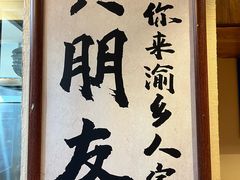 你来渝乡人家
朋友